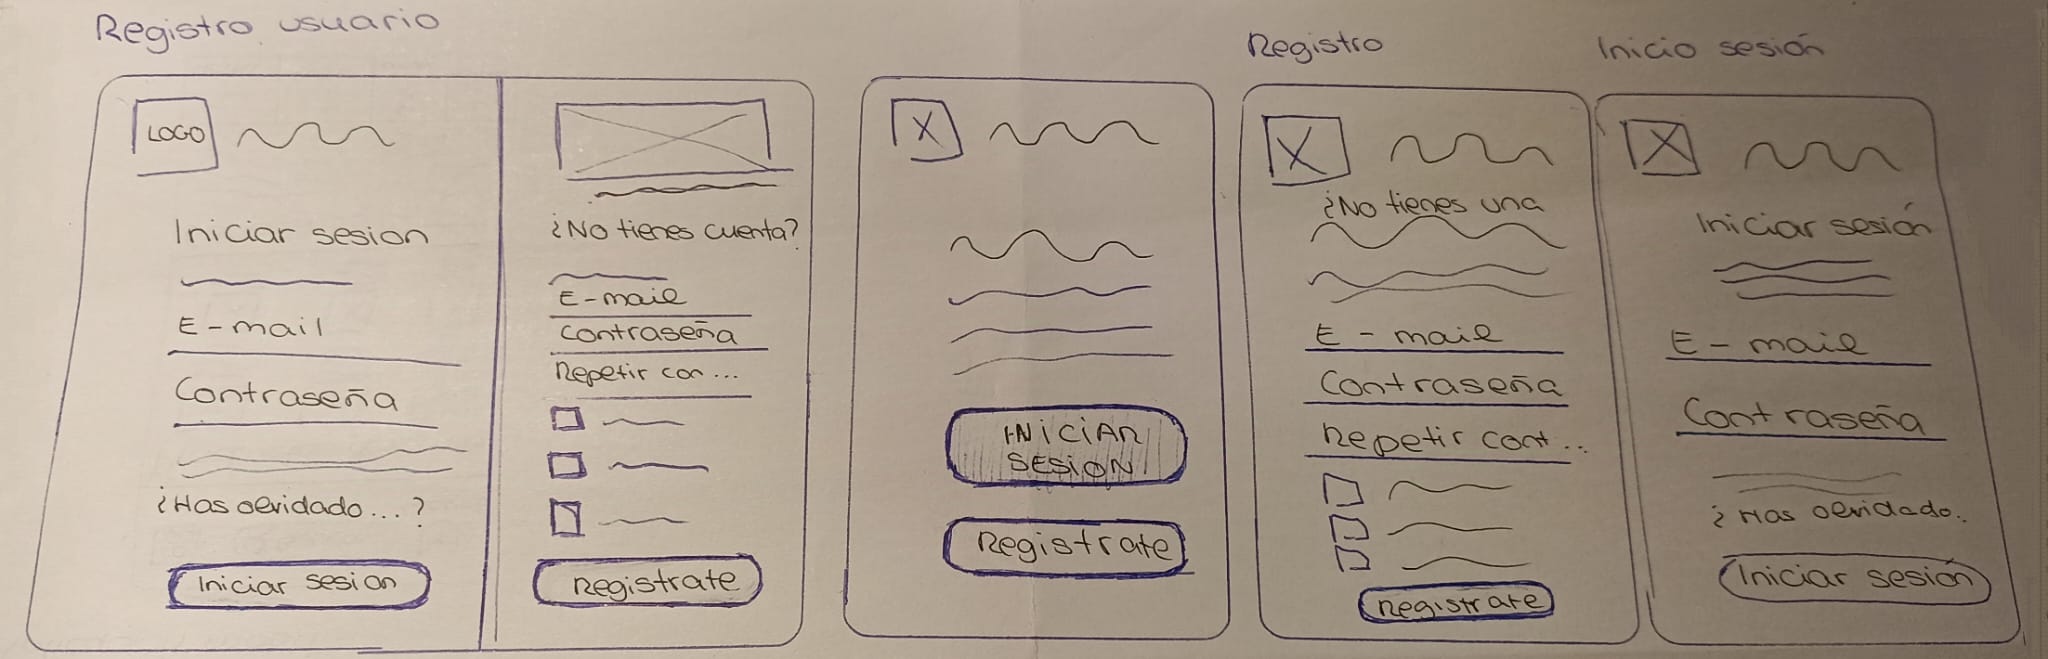 Registro usuario
LOGO
Iniciar sesion
E-mail
Contraseña
¿Has olvidado...?
Iniciar sesion
¿No tienes cuenta?
E-mail
Contraseña
Repetir con...
Registrate
INICIAR
SESION
Registrate
Registro
¿No tienes una
E-mail
Contraseña
Repetir cont...
Registrate
Inicio sesión
Iniciar sesión
E-mail
Contraseña
¿Has olvidado..
Iniciar sesión